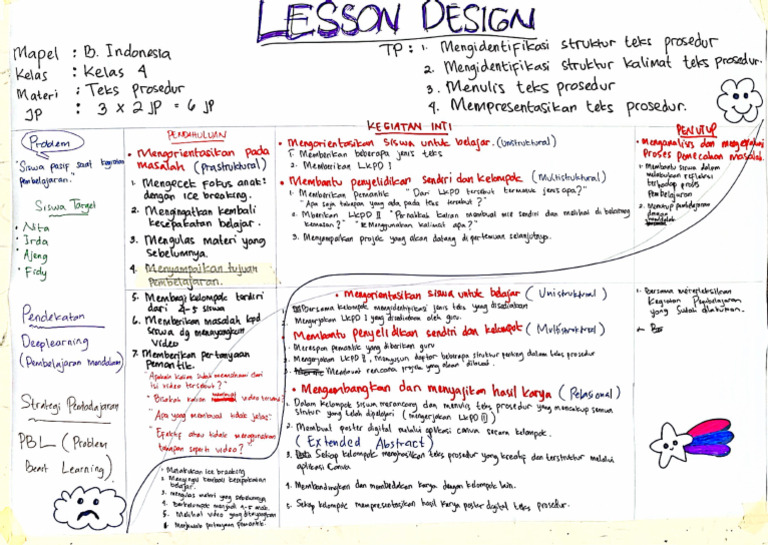 LESSON DESIGN
Mapel : B. Indonesia
Kelas : Kelas 4
Materi : Teks prosedur
JP : 3 x 2 JP = 6 JP
TP : 1. Mengidentifikasi struktur teks prosedur
2. Mengidentifikasi struktur kalimat teks prosedur.
3. Menulis teks prosedur
4. Mempresentasikan teks prosedur.
Problem
"Siswa pasif saat kegiatan
pembelajaran."
Siswa Target
• Nita
• Irda
• Ajeng
• Fidy
Pendekatan
Deeplearning
(Pembelajaran mendalam)
Strategi Pembelajaran
PBL (Problem
Beart Learning)
PENDAHULUAN
• Mengorientasikan pada
masalah (Prastruktural)
1. Mengecek fokus anak:
dengan ice breaking.
2. Mengingatkan kembali
kesepakatan belajar.
3. Mengulas materi yang
sebelumnya.
4. Menyampaikan tujuan
pembelajaran.
5. Membagi kelompok terdiri
dari 4-5 siswa
6. Memberikan masalah kpd
siswa dg menyangkan
video
7. Memberikan pertanyaan
Pemantik.
"Apakah kalian sudah memahami dari
isi video tersebut?"
"Bisakah kalian video tersebut
"Apa yang membuat tidak jelas"
"Efektif atau tidak menggunakan
tahapan seperti video?
1. Melakukan ice breaking
2. Menyepakati kembali kesepakatan
belajar.
3. mengulas materi yang sebelumnya
4. Berkelompok menjadi 4-5 anak.
5. Melihat video yang ditayangkan
6. Menjawab pertanyaan pemantik.
KEGIATAN INTI
• Mengorientasikan siswa untuk belajar. (Unistruktural)
1. Memberikan beberapa jenis teks
2. Memberikan LKPD I
• Membantu penyelidikan sendiri dan kelompok (Multistruktural)
1. Memberikan Pemantik "Dari LKPD tersebut termasuk jenis apa?"
"Apa saja tahapan yang ada pada teks tersebut?"
2. Mberikan LKPD II "Pernahkah kalian membuat mie sendiri dan melihat di belakang
kemasan?" "Menggunakan kalimat apa?"
3. Menyampaikan projek yang akan datang di pertemuan selanjutnya.
• Mengorientasikan siswa untuk belajar (Unistruktural)
Bersama kelompok mengidentifikasi jenis teks yang disediakan
Mengerjakan LKPD I yang disediakan oleh guru.
Membantu penyelidikan sendiri dan kelompok (Multistruktural)
Merespon pemantik yang diberikan guru
Mengerjakan LKPD II, menyusun daftar beberapa struktur penting dalam teks prosedur
3. Membuat rencana projek yang akan dibuat.
• Mengembangkan dan menyajikan hasil karya (Relasional)
Dalam kelompok siswa merancang dan menulis teks prosedur yang mencakup semua
struktur yang telah dipelajari (mengerjakan LKPD III)
2. Membuat poster digital melalui aplikasi canva secara kelompok.
(Extended Abstract)
3. Setiap kelompok menghasilkan teks prosedur yang kreatif dan terstruktur melalui
aplikasi Canva
4. Membandingkan dan membedakan karya dengan kelompok lain.
5. Setiap kelompok mempresentasikan hasil karya poster digital teks prosedur.
PENUTUP
• Menganalisis dan mengevaluasi
Proses pemecahan masalah.
1. Membantu siswa dalam
melakukan refleksi
terhadap proses
Pembelajaran
2. Menutup pembelajaran
dengan
1. Bersama merefleksikan
kegiatan Pembelajaran
yang sudah dilakukan.